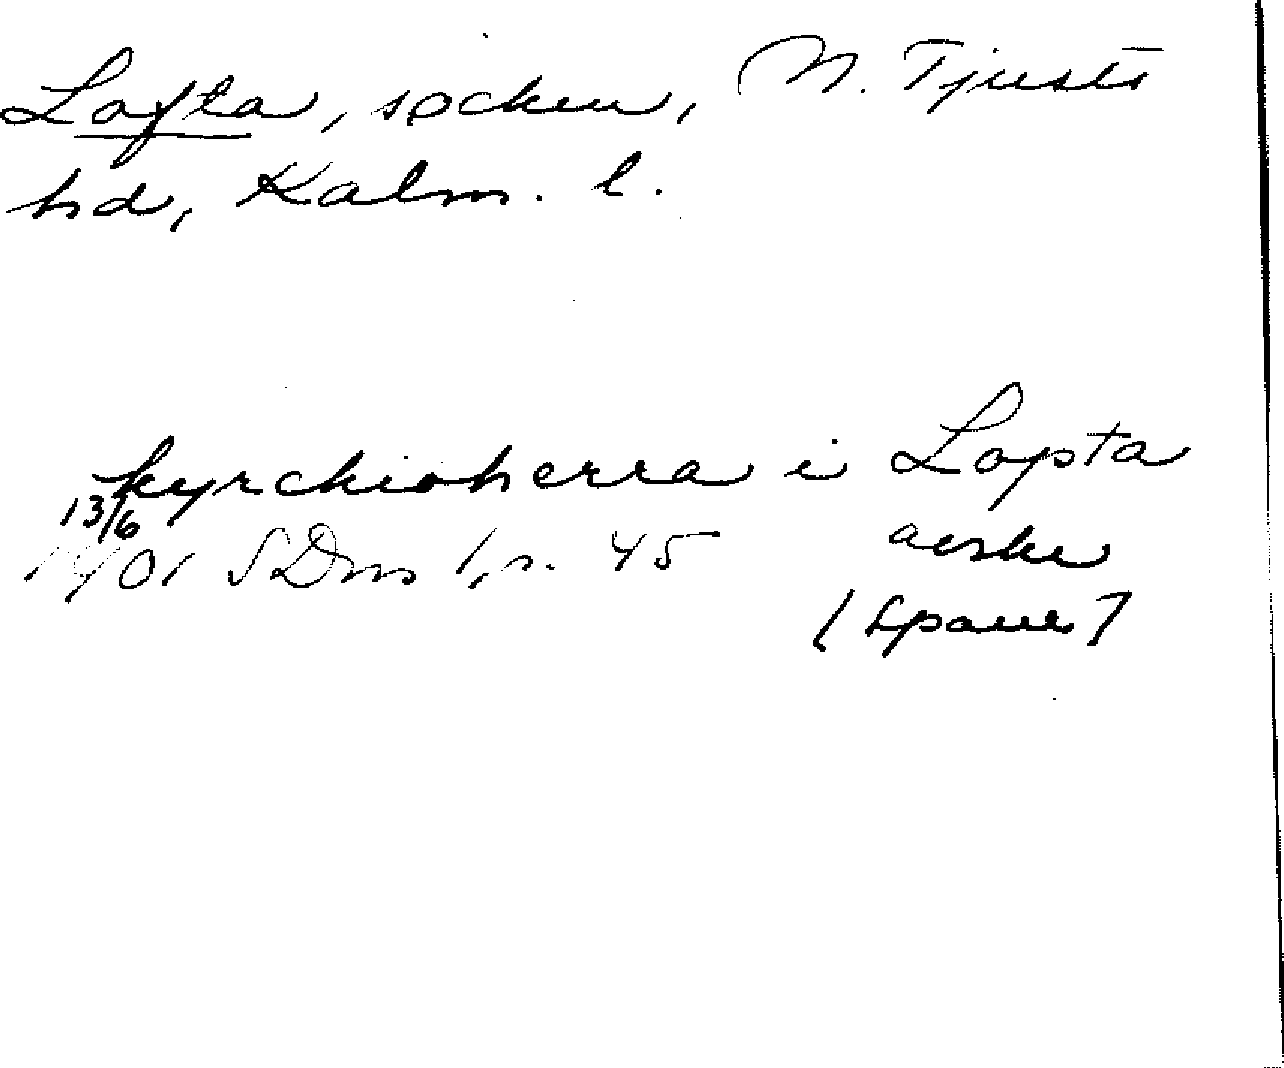 Lofta, socken, N. Tjusts
hd, Kalm. l.
kyrchioherra i Lopta
13/6 aeske
1401 SDns 1, s. 45